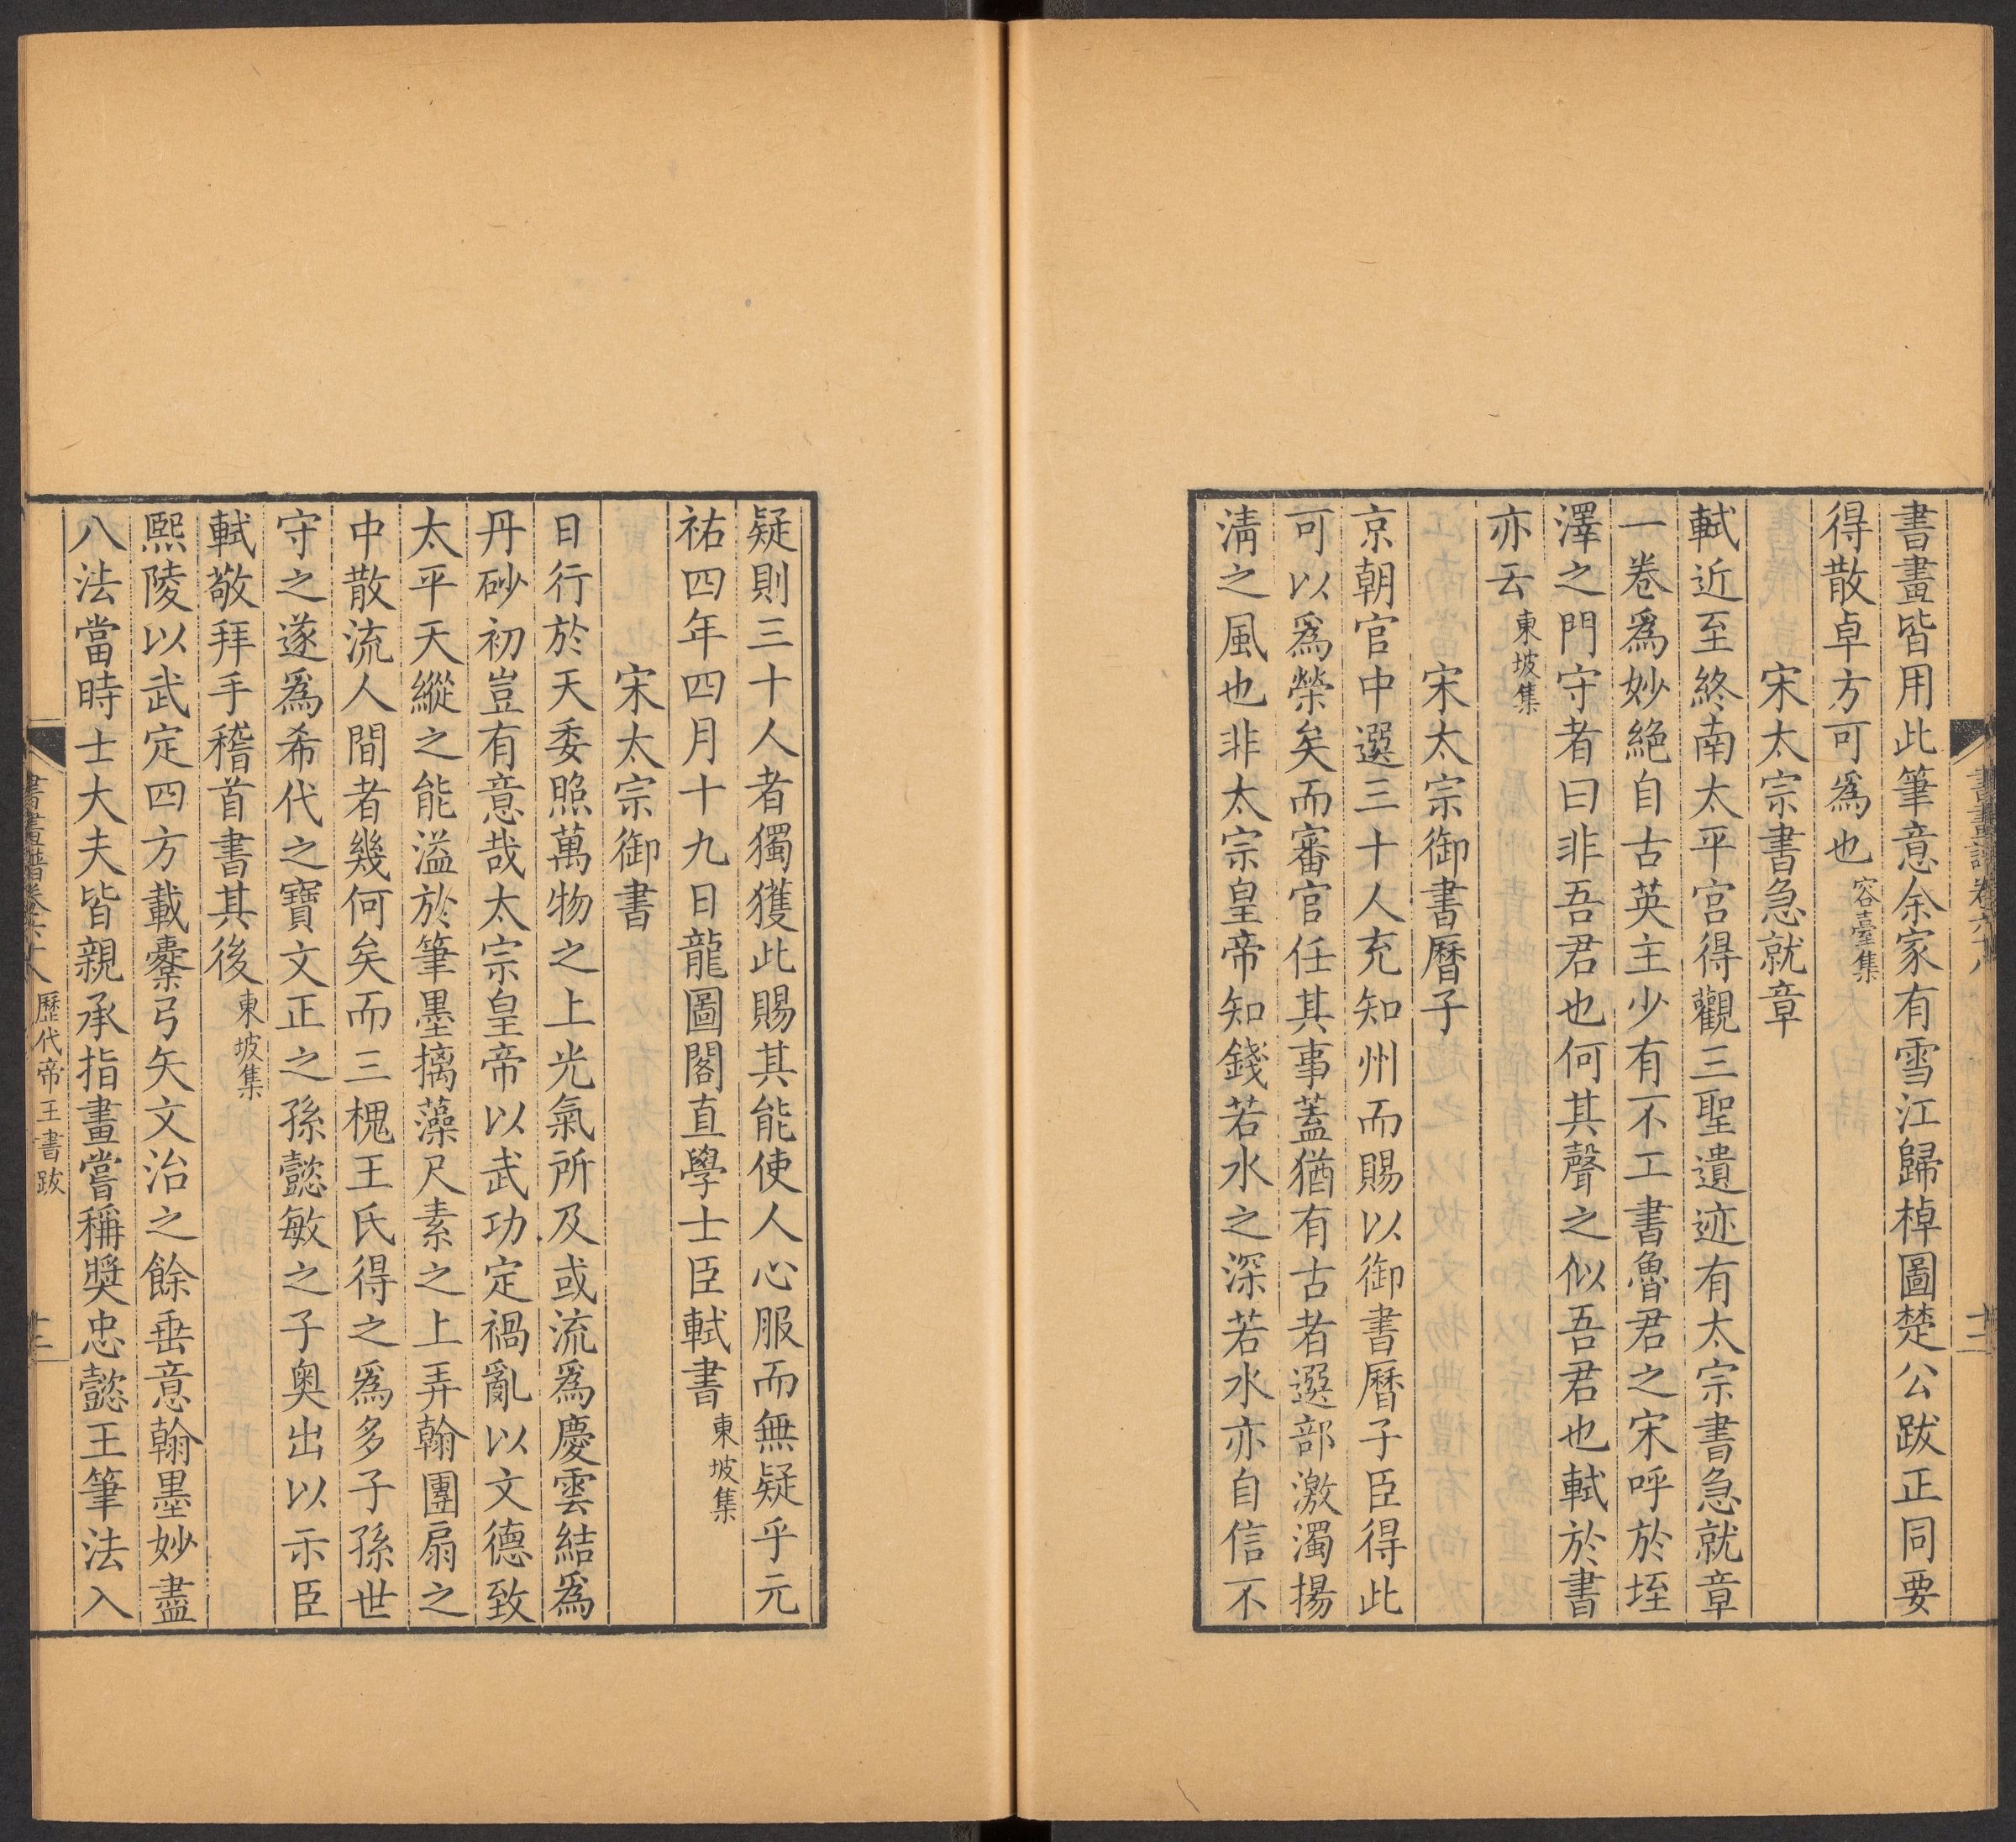 書畫皆用此筆意余家有雪江歸棹圖楚公跋正同要
得散卓方可爲也容臺集
宋太宗書急就章
軾近至終南太平宮得觀三聖遺迹有太宗書急就章
一卷爲妙絕自古英主少有不工書魯君之宋呼於垤
澤之門守者曰非吾君也何其聲之似吾君也軾於書
亦云東坡集
宋太宗御書曆子
京朝官中選三十人充知州而賜以御書曆子臣得此
可以爲榮矣而審官任其事蓋猶有古者選部激濁揚
淸之風也非太宗皇帝知錢若水之深若水亦自信不
疑則三十人者獨獲此賜其能使人心服而無疑乎元
祐四年四月十九日龍圖閣直學士臣軾書東坡集
宋太宗御書
日行於天委照萬物之上光氣所及或流爲慶雲結爲
丹砂初豈有意哉太宗皇帝以武功定禍亂以文德致
太平天縱之能溢於筆墨摛藻尺素之上弄翰團扇之
中散流人間者幾何矣而三槐王氏得之爲多子孫世
守之遂爲希代之寶文正之孫懿敏之子奧出以示臣
軾敬拜手稽首書其後東坡集
熙陵以武定四方載櫜弓矢文治之餘垂意翰墨妙盡
八法當時士大夫皆親承指畫嘗稱獎忠懿王筆法入
書畫譜卷六十八 歷代帝王書跋 十二